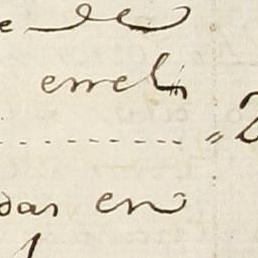 e de
en el
" 2
das en